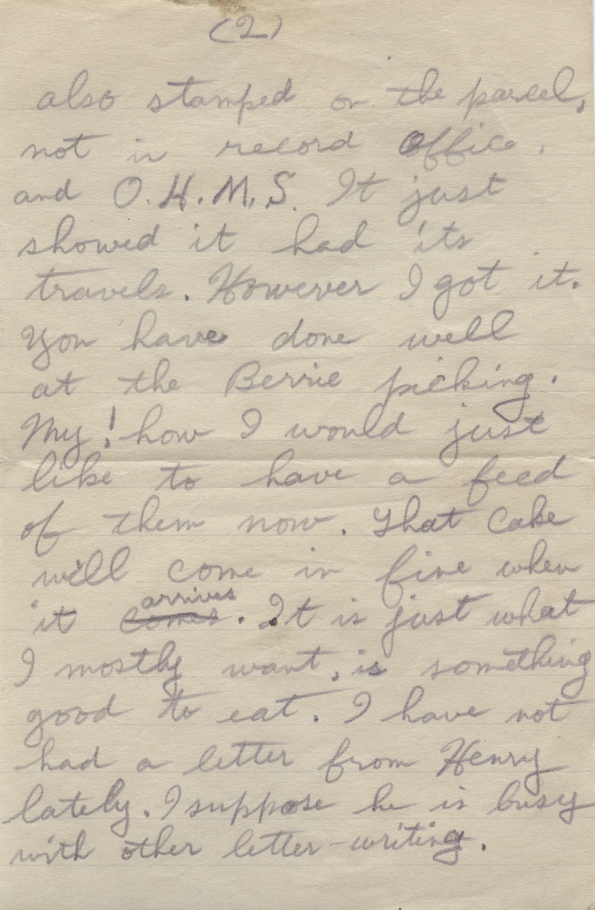 (2)
also stamped on the parcel,
not in record Office.
and O.H.M.S. It just
showed it had its
travels. However I got it.
You have done well
at the Berrie picking.
My! how I would just
like to have a feed
of them now. That Cake
will come in fine when
it comes arrives. It is just what
I mostly want, is something
good to eat. I have not
had a letter from Henry
lately. I suppose he is busy
with other letter-writing.